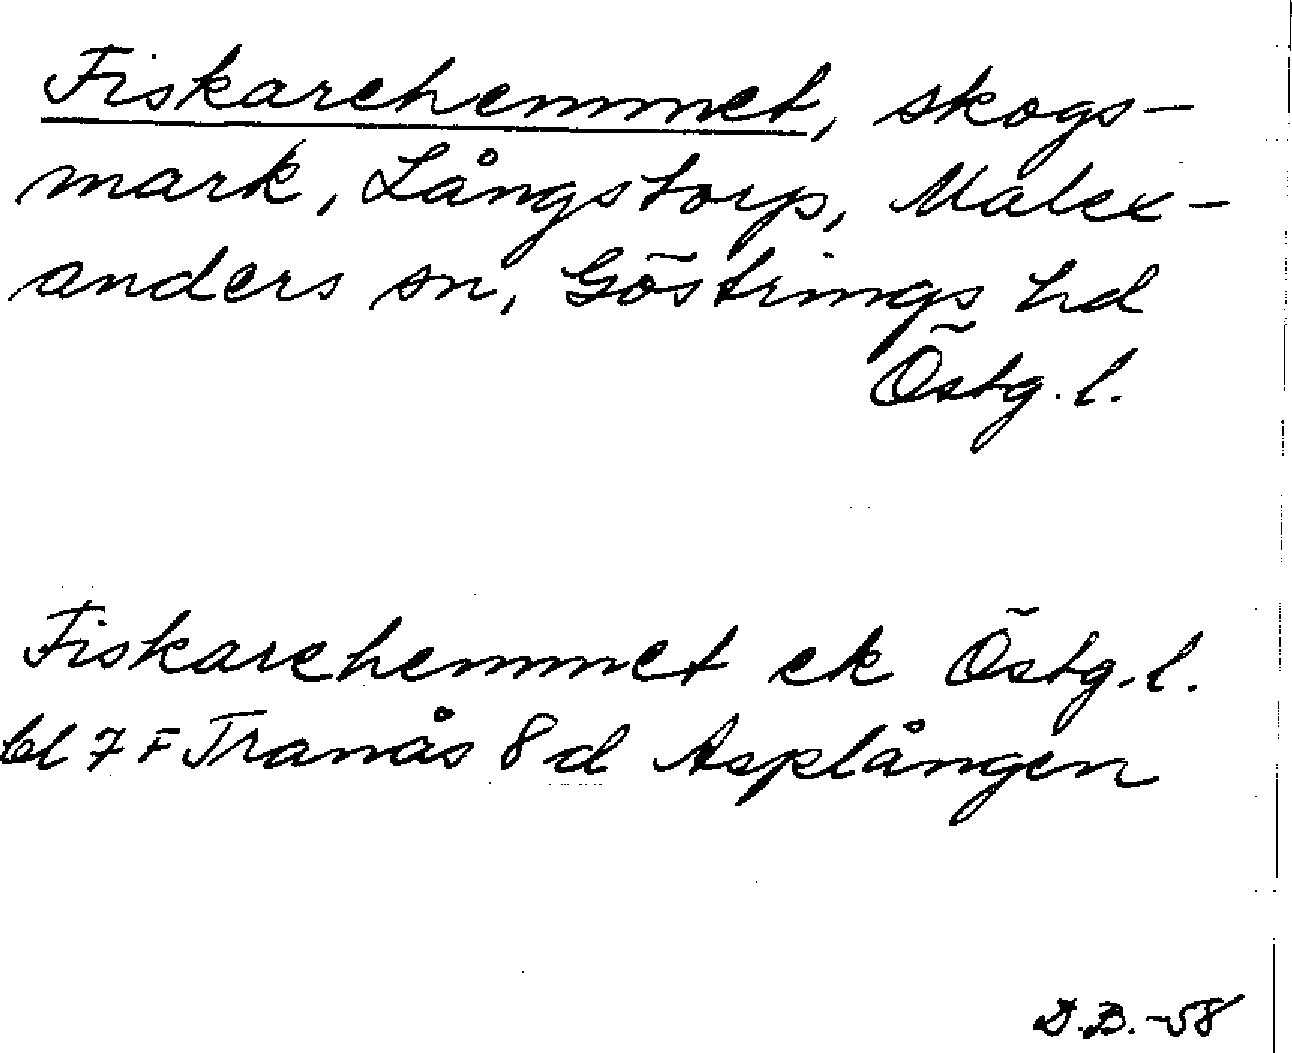 Fiskarehemmet, skogs-
mark, Långstorp, Malex-
anders sn, Göstrings hd
Östg. l.
Fiskarehemmet ek Östg. l.
bl 7 F Tranås 8 d Asplången
D.B. -58